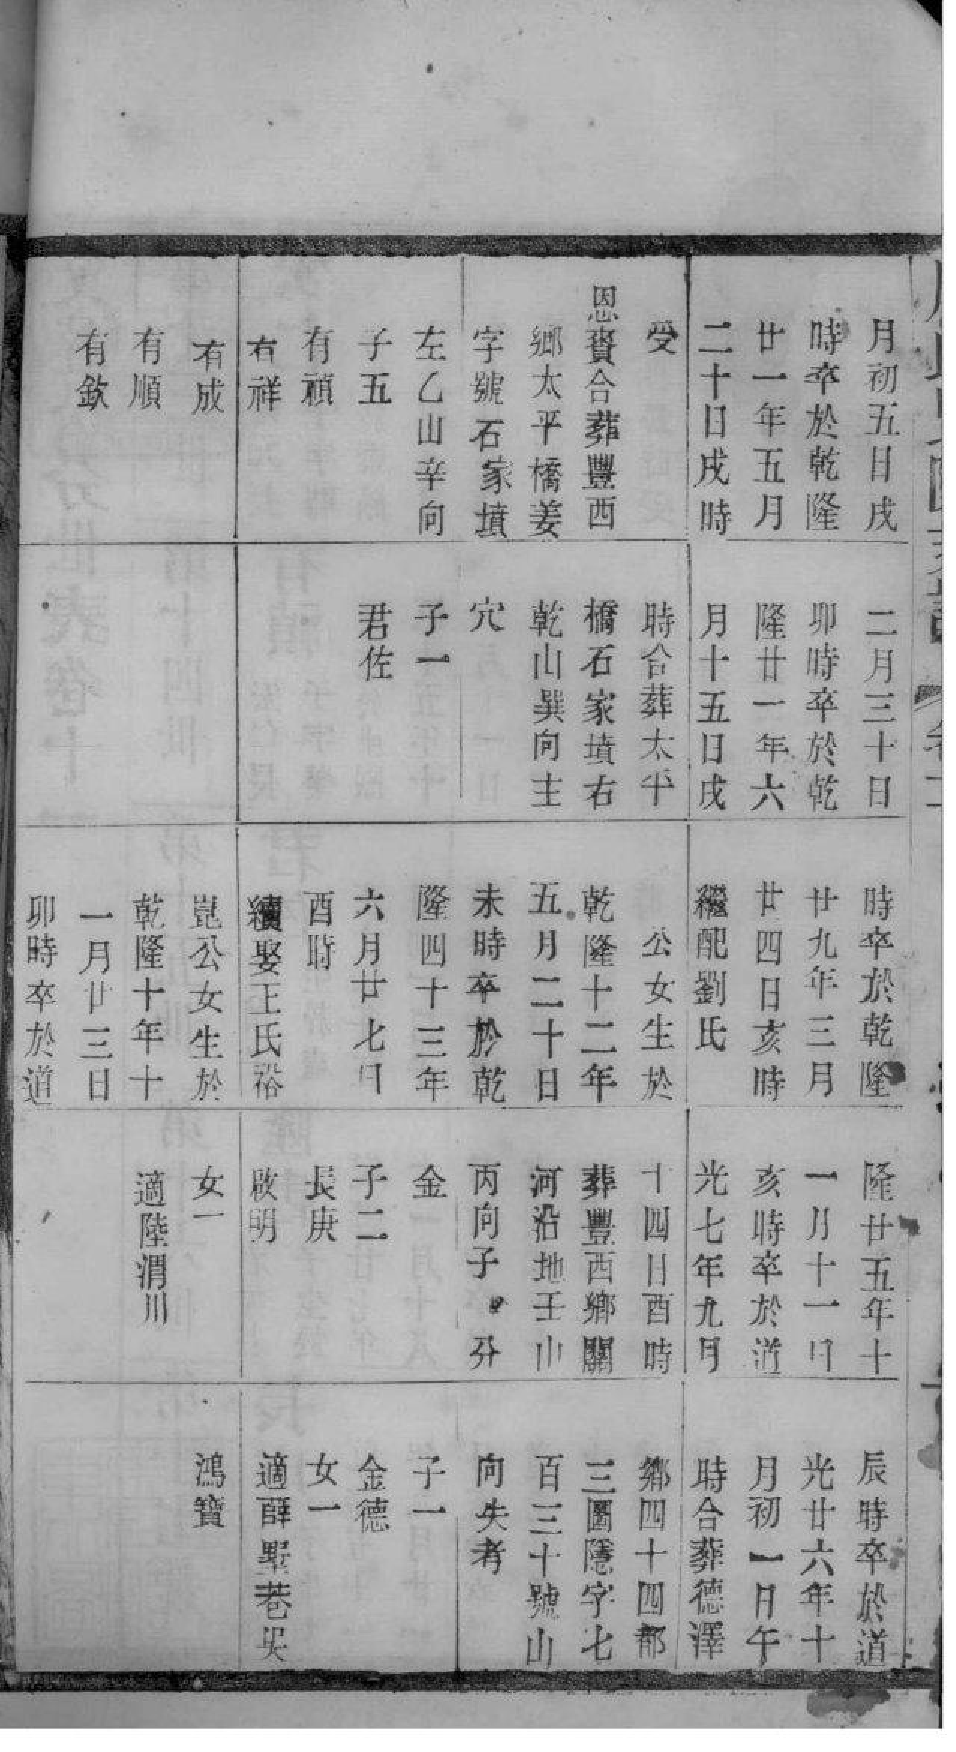 月初五日戌
時卒於乾隆
廿一年五月
二十日戌時
受
恩賚合葬豐西
鄉太平橋姜
字號石家墳
左乙山辛向
子五
有禎
有祥
有成
有順
有欽
二月三十日
卯時卒於乾
隆廿一年六
月十五日戌
時合葬太平
橋石家墳右
乾山巽向主
穴
子一
君佐
時卒於乾隆
廿九年三月
廿四日亥時
繼配劉氏
公女生於
乾隆十二年
五月二十日
未時卒於乾
隆四十三年
六月廿七日
酉時
續娶王氏裕
崑公女生於
乾隆十年十
一月廿三日
卯時卒於道
隆廿五年十
一月十一日
亥時卒於道
光七年九月
十四日酉時
葬豐西鄉關
河沿地壬山
丙向子分
金
子二
長庚
啟明
女一
適陸渭川
辰時卒於道
光廿六年十
月初一日午
時合葬德澤
鄉四十四都
三圖隱字七
百三十號山
向失考
子一
金德
女一
適薛墅巷吳
鴻寶